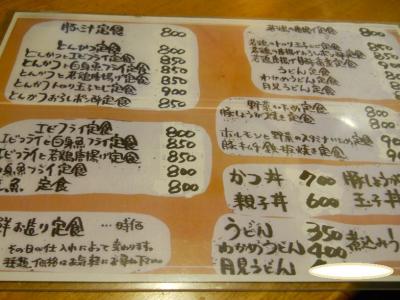 定食 800
とんかつ定食 800
とんかつとエビフライ定食 850
とんかつと白身魚フライ定食 850
とんかつと若鶏唐揚げ定食 850
とんかつトロリ玉子とじ定食
とんかつおろしポン酢定食 850
エビフライ定食 800
エビフライと白身魚フライ定食 850
エビフライと若鶏唐揚げ定食 850
身魚フライ定食 800
魚 定食 800
お造り定食 …時価
その日の仕入れによって変わります。
種類・価格はお気軽にお尋ね下さい
若鶏の唐揚げ定食 800
若鶏のトロリ玉子とじ定食 850
うどん定食
わかめうどん定食
月見うどん定食
野菜いため定食 800
豚しょうが焼き定食 800
ホルモンと野菜のスタミナいため定食 90
豚キムチ鉄板焼き定食 90
かつ丼 700
豚しょうが
親子丼 600
玉子丼
うどん 350
煮込みう
わかめうどん 400
月見うどん